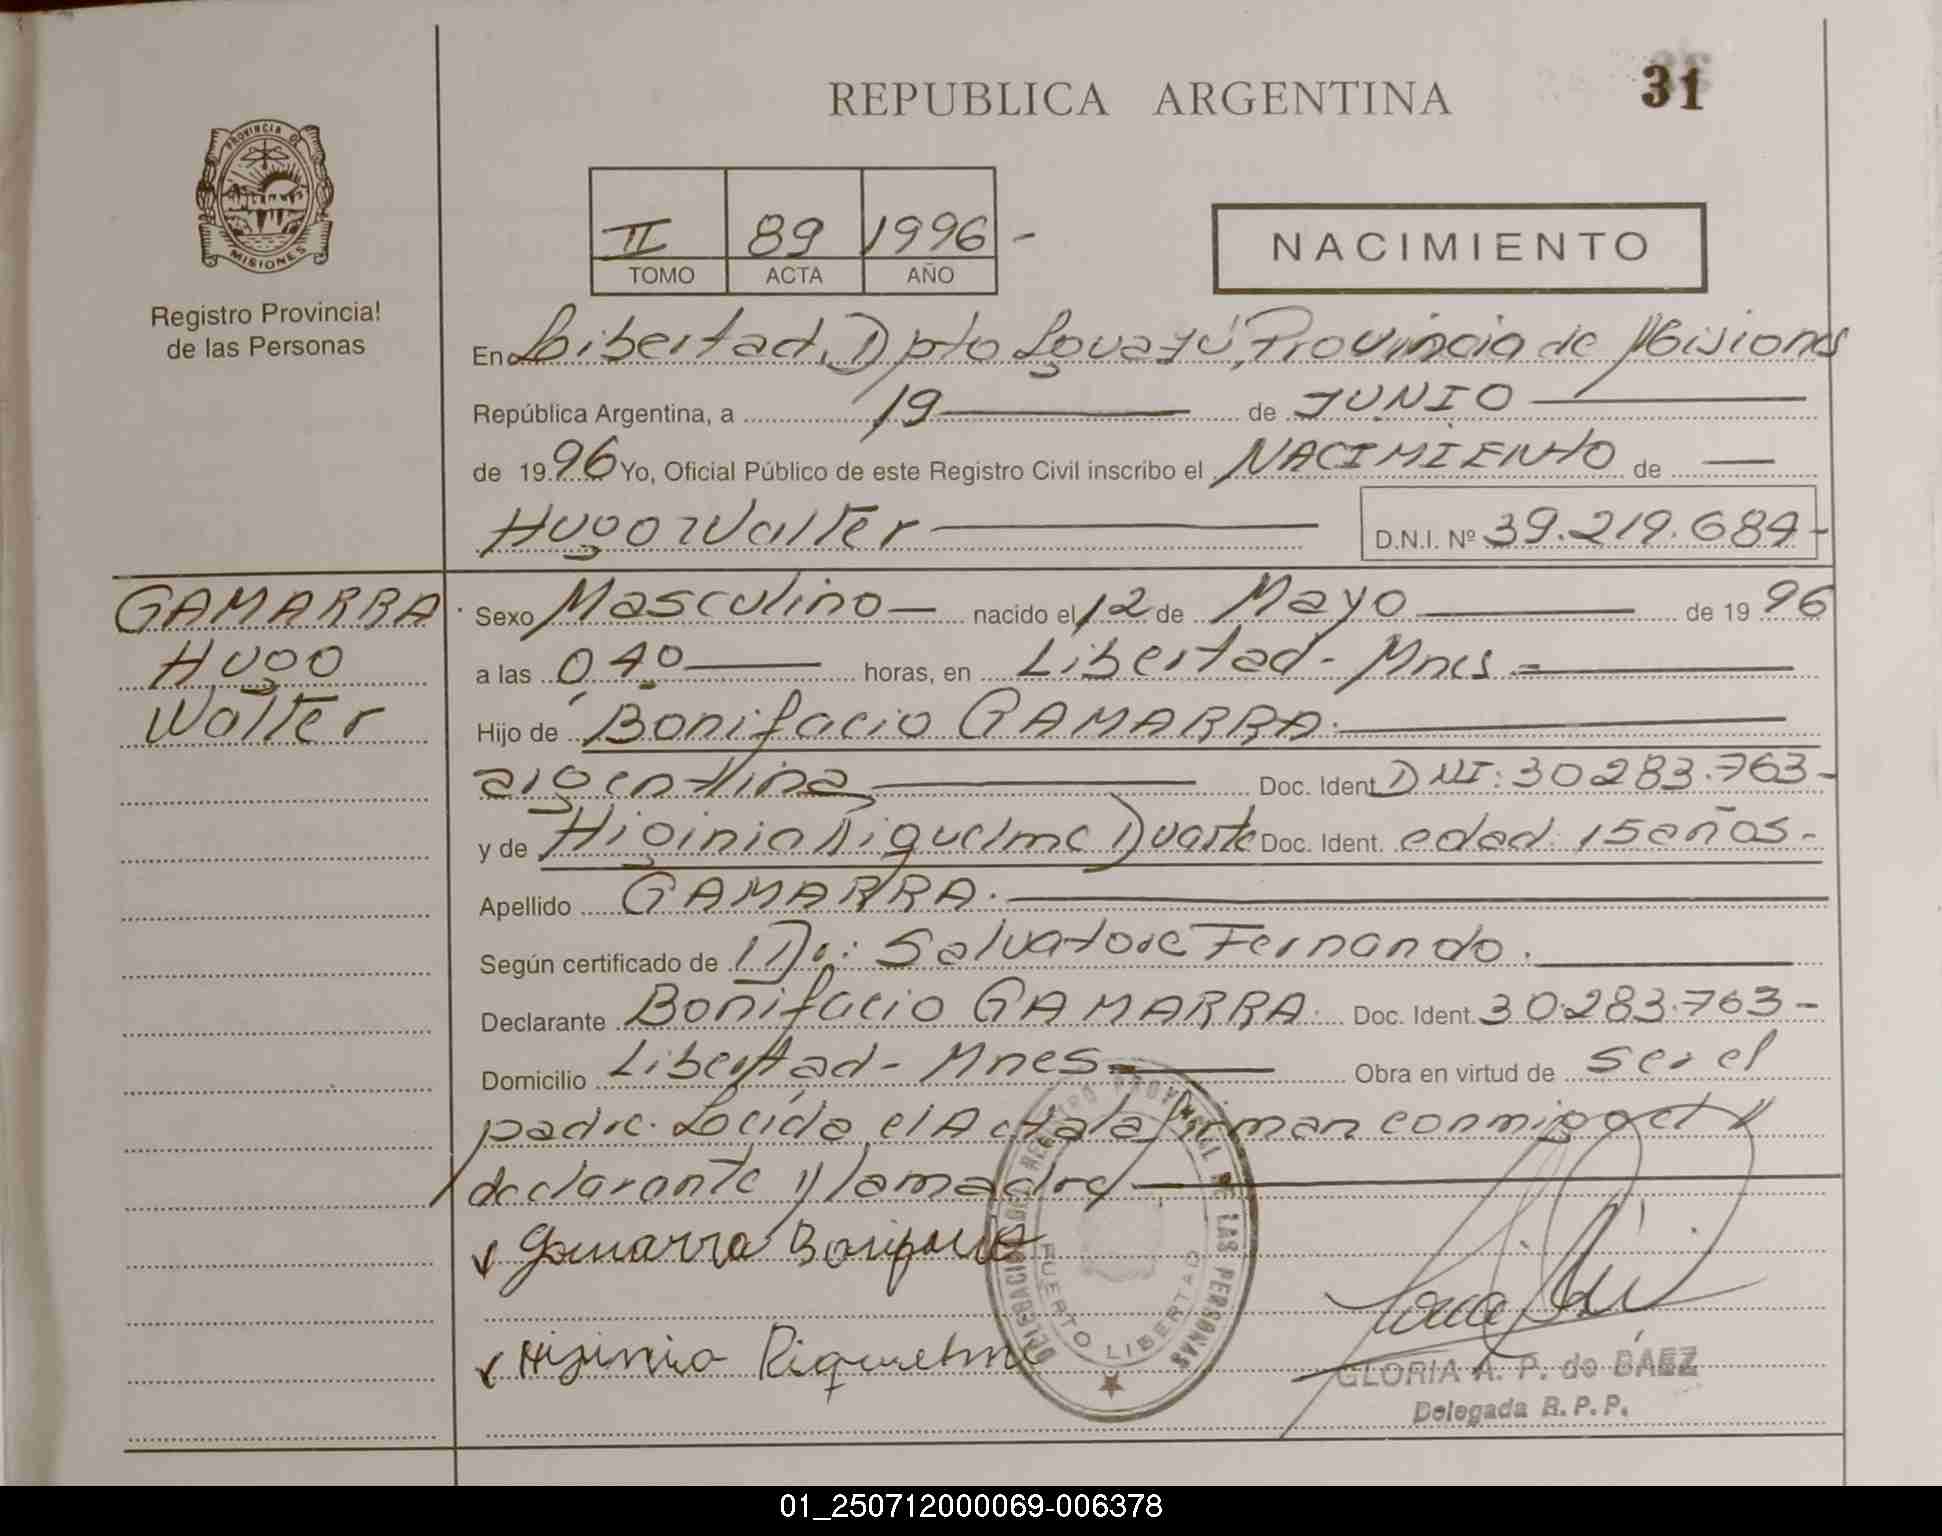 REPUBLICA ARGENTINA
31
PROVINCIA DE
MISIONES
Registro Provincial
de las Personas
II 89 1996 -
TOMO ACTA AÑO
NACIMIENTO
En Libertad, Dpto Iguazú, Provincia de Misiones
República Argentina, a 19 de JUNIO
de 1996 Yo, Oficial Público de este Registro Civil inscribo el NACIMIENTO de
Hugo Walter D.N.I. Nº 39.219.684-
GAMARRA
Hugo
Walter
Sexo Masculino nacido el 12 de Mayo de 1996
a las 0,40 horas, en Libertad - Mnes.=
Hijo de Bonifacio GAMARRA.
argentina Doc. Ident. DNI: 30283.763-
y de Higinia Riquelme Duarte Doc. Ident. edad: 15 años.-
Apellido GAMARRA.
Según certificado de Dr: Salvatore Fernando.
Declarante Bonifacio GAMARRA. Doc. Ident. 30.283.763-
Domicilio Libertad - Mnes. Obra en virtud de ser el
padre. Leída el Acta la firman conmigo el
declarante y la madre
Gamarra Bonifacio
Higinia Riquelme
DELEGACION DEL REGISTRO PROVINCIAL DE LAS PERSONAS
PUERTO LIBERTAD
GLORIA A. P. de BÁEZ
Delegada R. P. P.
01_250712000069-006378